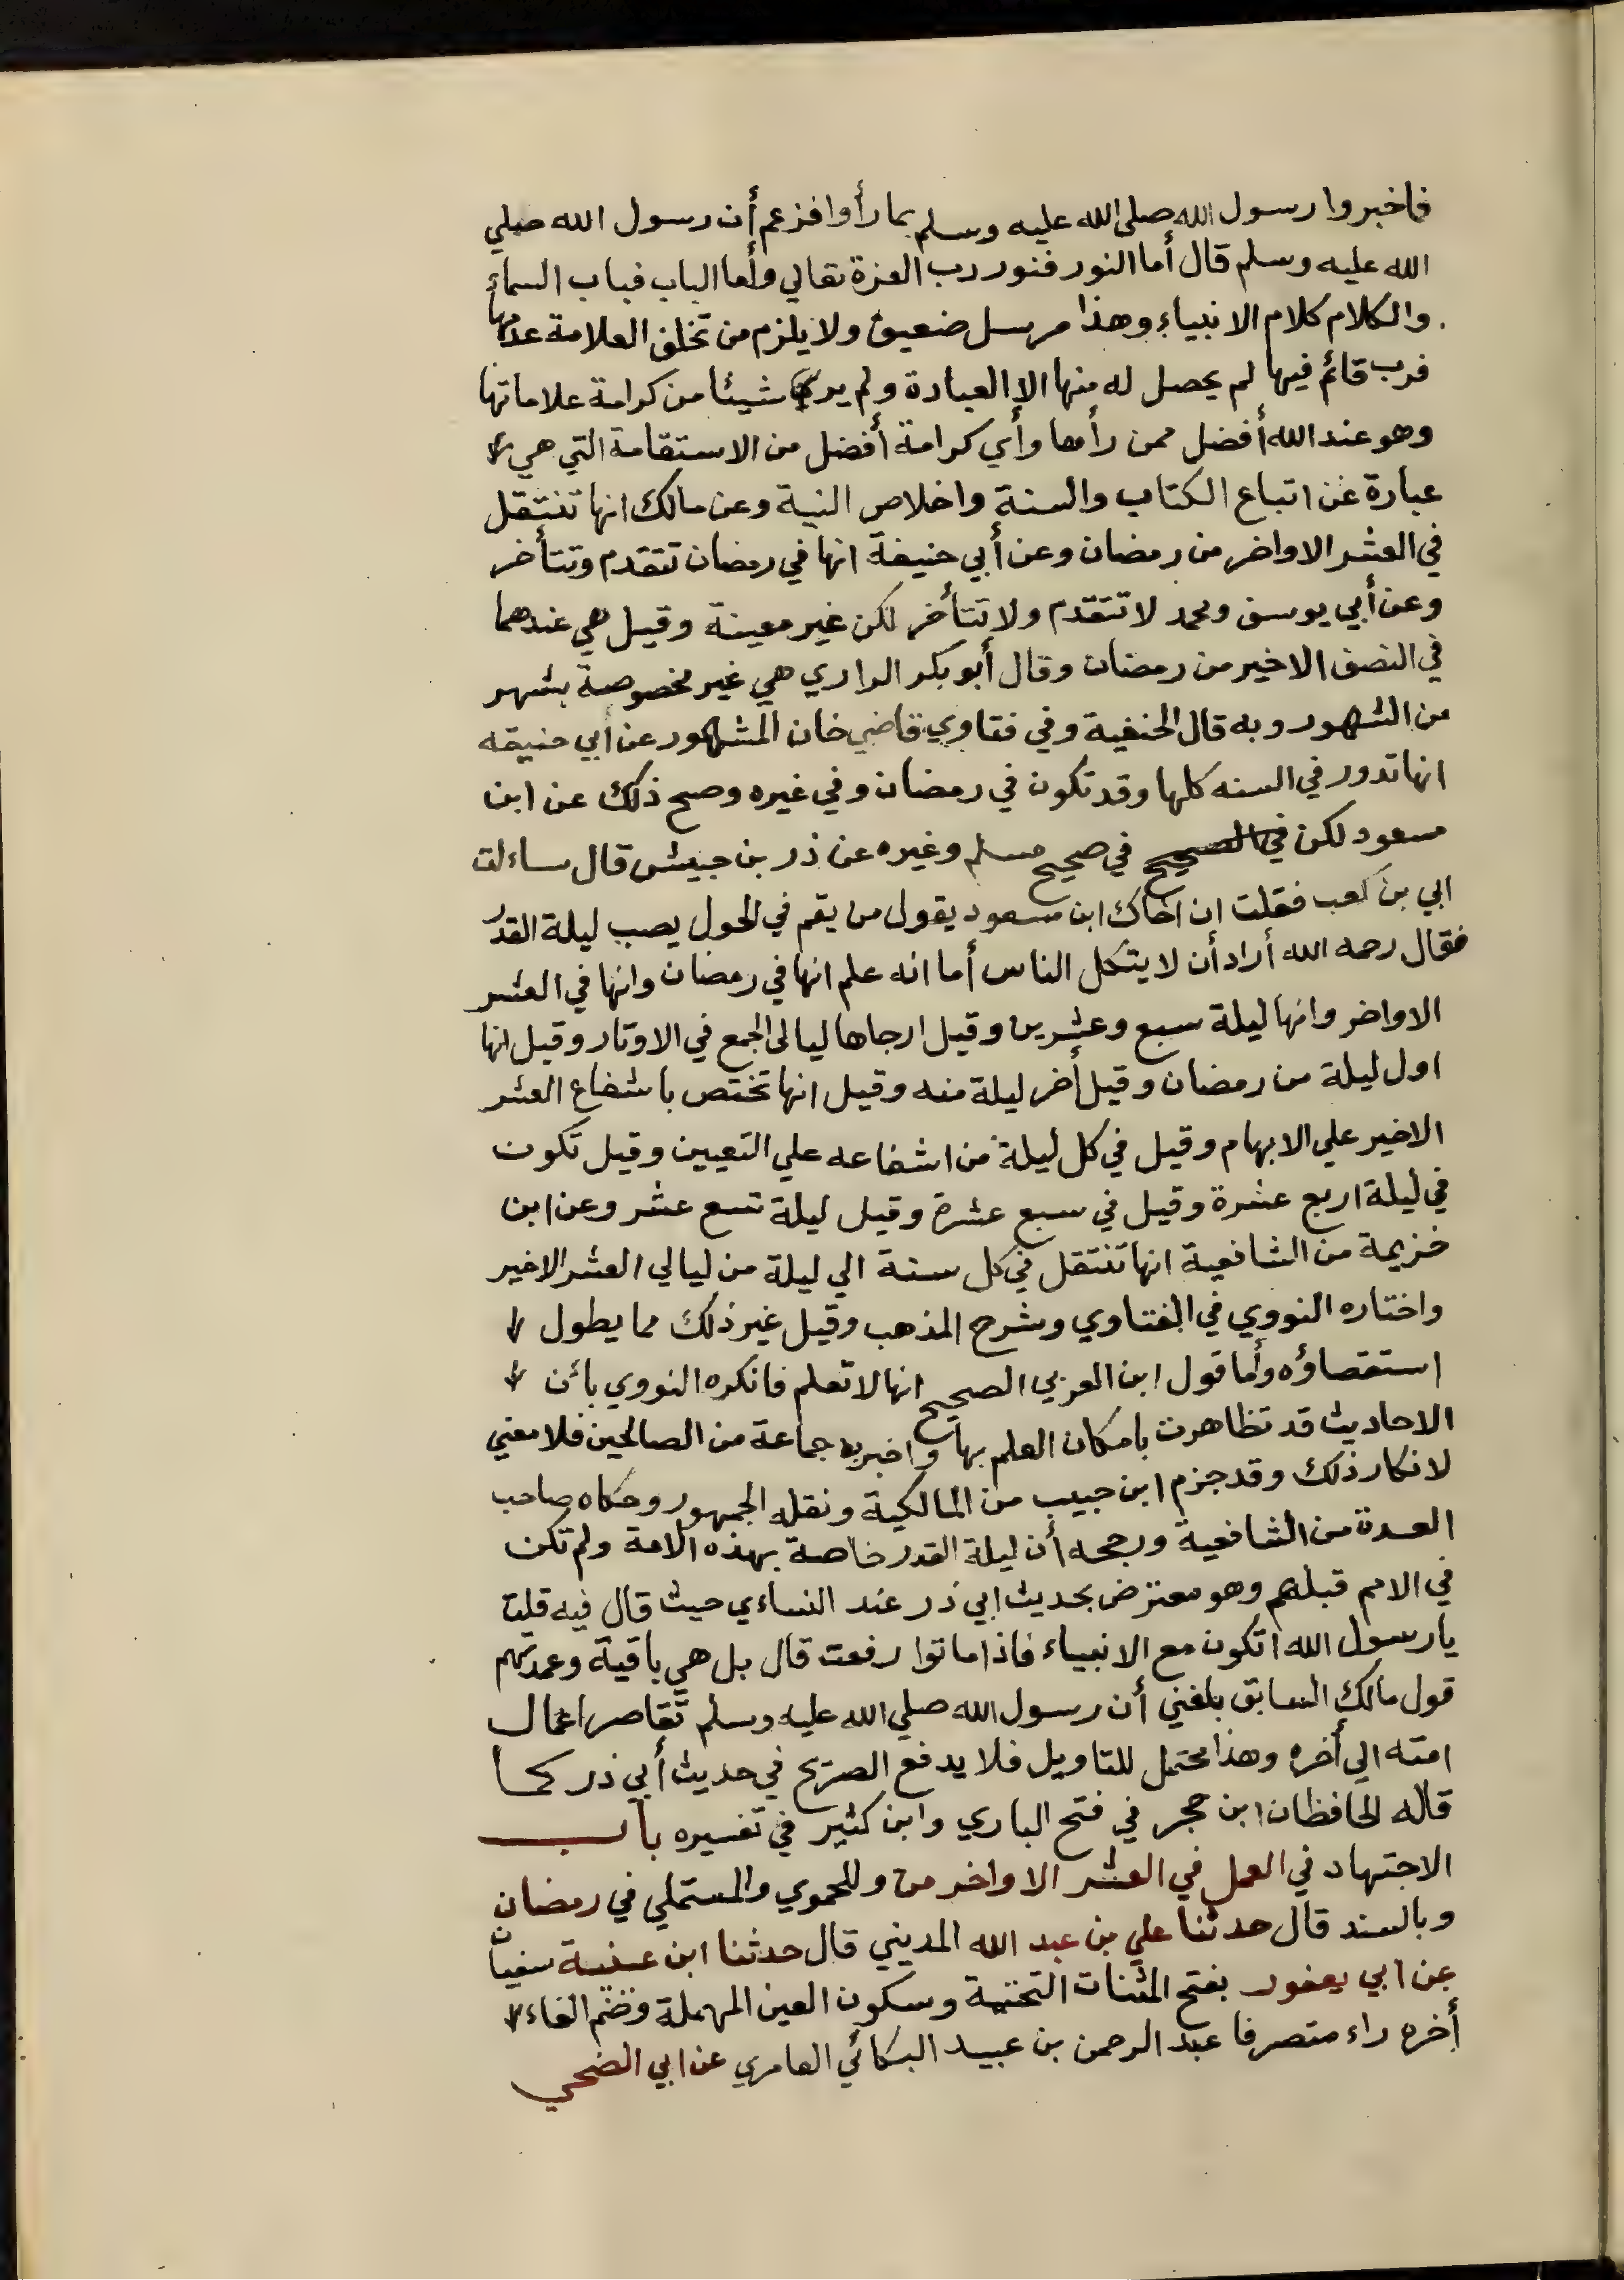 فاخبروا رسول الله صلى الله عليه وسلم بما رأوا فزعم أن رسول الله صلي
الله عليه وسلم قال أما النور فنور رب العزة تعالي وأما الباب فباب السماء
والكلام كلام الانبياء وهذا مرسل ضعيف ولا يلزم من تخلف العلامة عدمها
فرب قائم فيها لم يحصل له منها الا العبادة ولم ير شيئا من كرامة علاماتها
وهو عند الله أفضل ممن رأها وأي كرامة أفضل من الاستقامة التي هي
عبارة عن اتباع الكتاب والسنة واخلاص النية وعن مالك انها تنتقل
في العشر الاواخر من رمضان وعن أبي حنيفة انها في رمضان تتقدم وتتأخر
وعن أبي يوسف ومحمد لا تتقدم ولا تتأخر لكن غير معينة وقيل هي عندهما
في النصف الاخير من رمضان وقال أبو بكر الرازي هي غير مخصوصة بشهر
من الشهور وبه قال الحنفية وفي فتاوي قاضي خان المشهور عن أبي حنيفه
انها تدور في السنه كلها وقد تكون في رمضان وفي غيره وصح ذلك عن ابن
مسعود لكن في الصحيح في صحيح مسلم وغيره عن زر بن حبيش قال ساءلت
ابي بن كعب فقلت ان اخاك ابن مسعود يقول من يقم في الحول يصب ليلة القدر
فقال رحمه الله أراد أن لا يتكل الناس أما انه علم انها في رمضان وانها في العشر
الاواخر وانها ليلة سبع وعشرين وقيل ارجاها ليالى الجمع في الاوتار وقيل انها
اول ليلة من رمضان وقيل أخر ليلة منه وقيل انها تختص باشفاع العشر
الاخير علي الابهام وقيل في كل ليلة من اشفاعه علي التعيين وقيل تكون
في ليلة اربع عشرة وقيل في سبع عشرة وقيل ليلة تسع عشر وعن ابن
خزيمة من الشافعية انها تنتقل في كل سنة الي ليلة من ليالي العشر الاخير
واختاره النووي في الفتاوي وشرح المذهب وقيل غير ذلك مما يطول
استقصاؤه وأما قول ابن العربي الصحيح انها لا تعلم فانكره النووي بائن
الاحاديث قد تظاهرت بامكان العلم بها واخبر به جماعة من الصالحين فلا معني
لانكار ذلك وقد جزم ابن حبيب من المالكية ونقله الجمهور وحكاه صاحب
العدة من الشافعية ورجحه أن ليلة القدر خاصة بهذه الامة ولم تكن
في الامم قبلهم وهو معترض بحديث ابي ذر عند النساءي حيث قال فيه قلت
يا رسول الله اتكون مع الانبياء فاذا ماتوا رفعت قال بل هي باقية وعمدتهم
قول مالك السابق بلغني أن رسول الله صلي الله عليه وسلم تقاصر اعمال
امته الي أخره وهذا محتمل للتاويل فلا يدفع الصريح في حديث أبي ذر كما
قاله الحافظان ابن حجر في فتح الباري وابن كثير في تفسيره باب
الاجتهاد في العمل في العشر الاواخر من وللحموي والمستملي في رمضان
وبالسند قال حدثنا علي بن عبد الله المديني قال حدثنا ابن عيينة سفيان
عن ابي يعفور بفتح المثنات التحتية وسكون العين المهملة وضم الفاء
أخره راء متصرفا عبد الرحمن بن عبيد البكائي العامري عن ابي الضحي